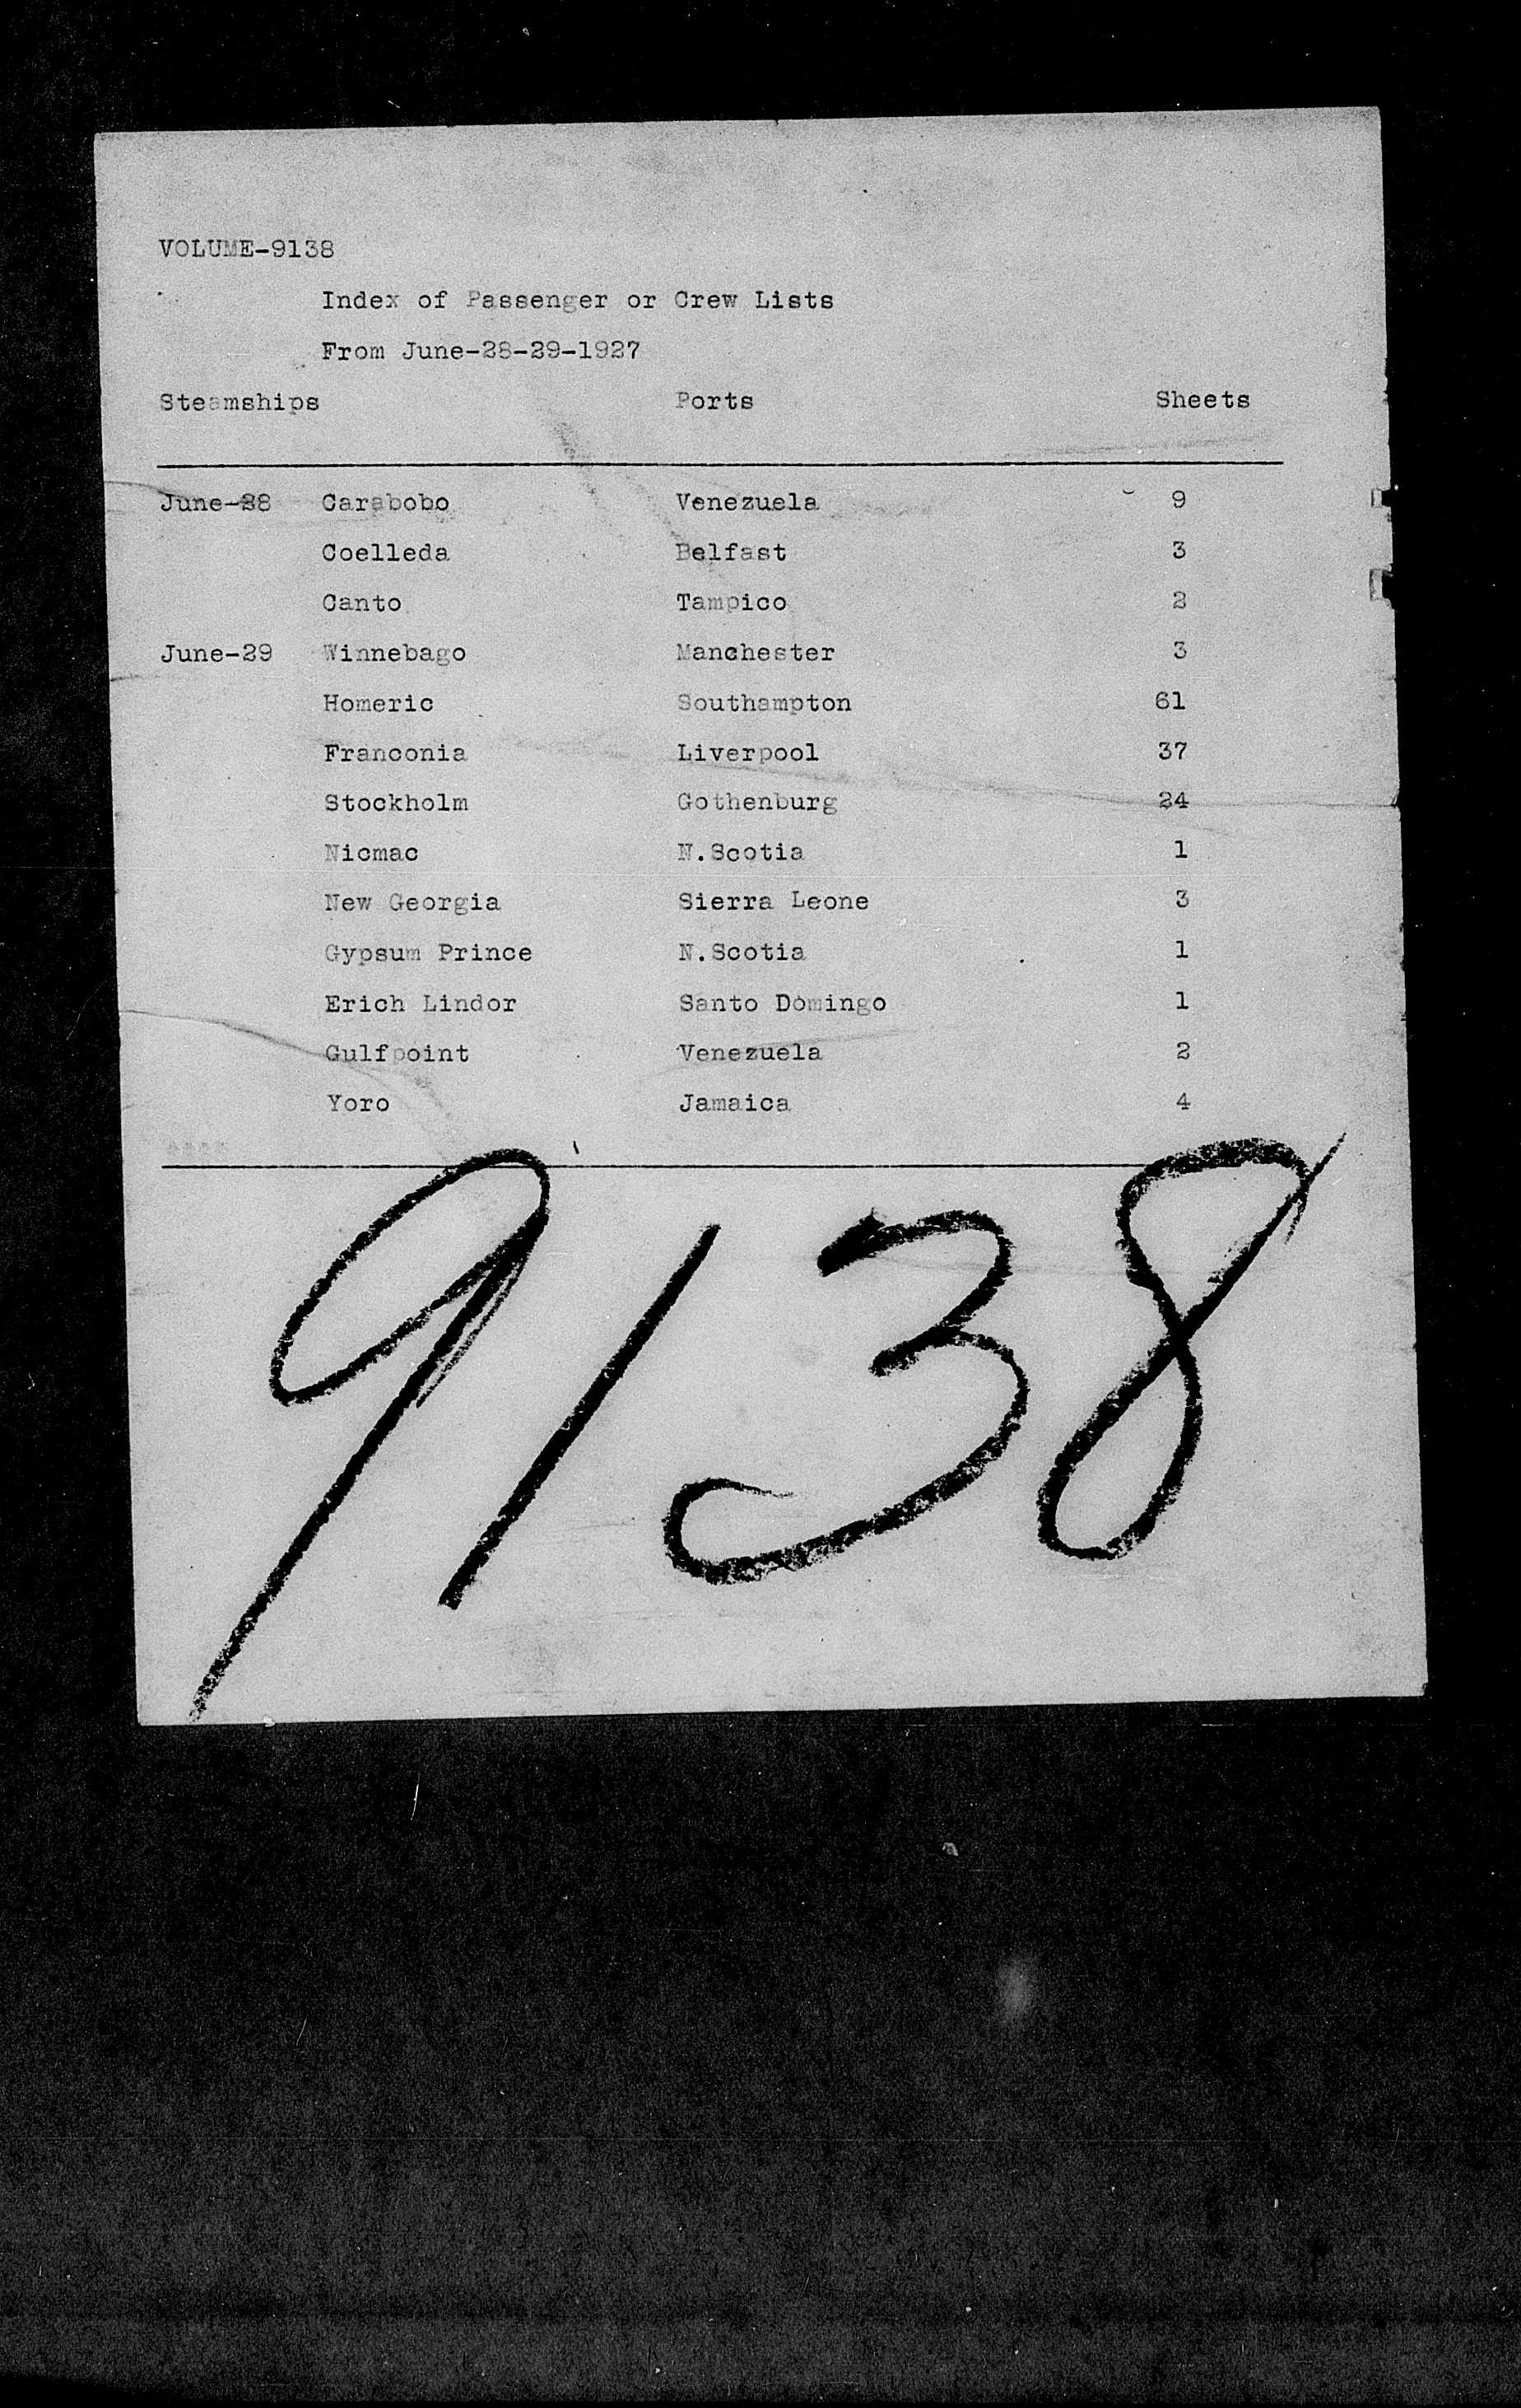 VOLUME-9138
Index of Passenger or Crew Lists
From June-28-29-1927
Steamships Ports Sheets
June-28 Carabobo Venezuela 9
Coelleda Belfast 3
Canto Tampico 2
June-29 Winnebago Manchester 3
Homeric Southampton 61
Franconia Liverpool 37
Stockholm Gothenburg 24
Nicmac N.Scotia 1
New Georgia Sierra Leone 3
Gypsum Prince N.Scotia 1
Erich Lindor Santo Domingo 1
Gulfpoint Venezuela 2
Yoro Jamaica 4
9138